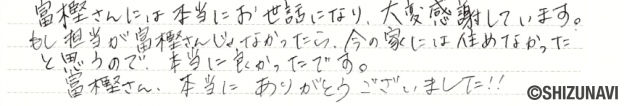 富樫さんには本当にお世話になり、大変感謝しています。
もし担当が富樫さんじゃなかったら、今の家には住めなかった
と思うので、本当に良かったです。
富樫さん、本当にありがとうございました!!
©SHIZUNAVI